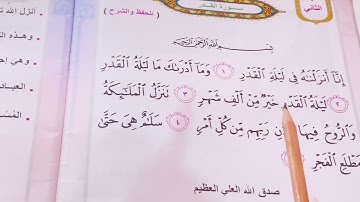 الثاني
سورة القدر
( للحفظ والشرح )
بسم الله الرحمن الرحيم
إِنَّا أَنزَلْنَاهُ فِي لَيْلَةِ الْقَدْرِ ١ وَمَا أَدْرَاكَ مَا لَيْلَةُ الْقَدْرِ
٢ لَيْلَةُ الْقَدْرِ خَيْرٌ مِّنْ أَلْفِ شَهْرٍ ٣ تَنَزَّلُ الْمَلَائِكَةُ
وَالرُّوحُ فِيهَا بِإِذْنِ رَبِّهِم مِّن كُلِّ أَمْرٍ ٤ سَلَامٌ هِيَ حَتَّىٰ
مَطْلَعِ الْفَجْرِ
صدق الله العلي العظيم
انزل الله
وهذه
وهي
العباد